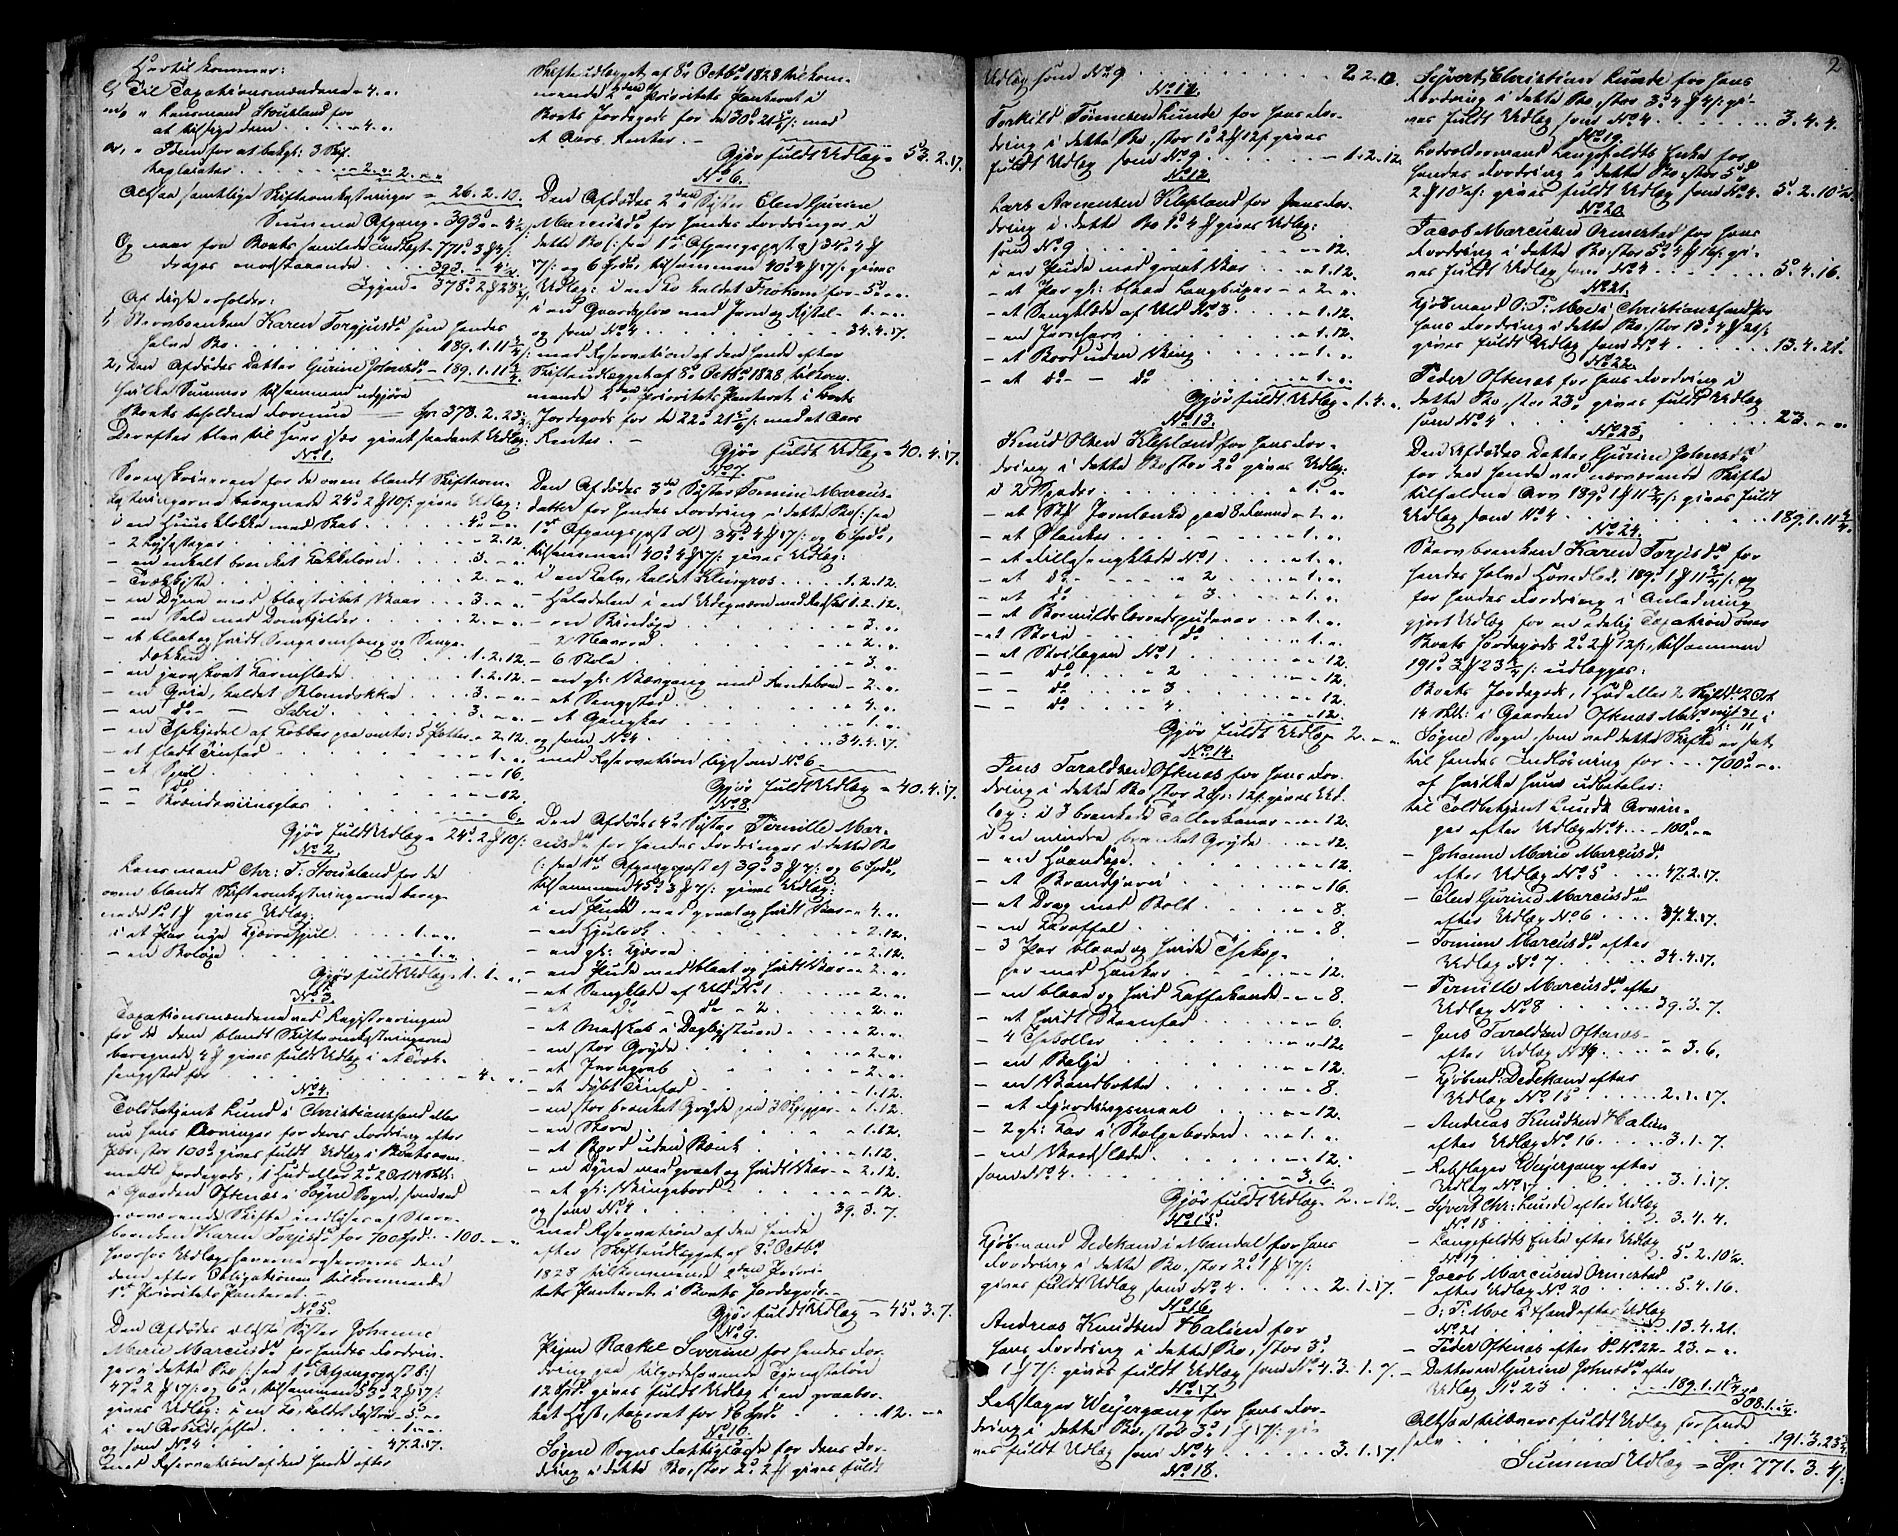 Hertil kommer:
Til Taxationsmændene - 4. „
„ Lensmand Stousland for
at tilsige dem . . . - 4. „
„ Idem for at bekg: 3 Skif
teplacater . . . - 2. „ - 2. „ „
Altsaa samtlige Skifteomkostninger = 26. 2. 10.
Summa Afgang = 393. „ 4½
Og naar fra Boets samlede Indtægt 771. 3 4
drages modstaaende . . 393. „ 4½
Igjen = 378. 2 23½
Af disse erholder:
1, Stervboenken Karen Torgjusd. som hendes
halve Bo . . . 189. 1. 11¾
2, Den Afdødes Datter Gurine Johnsd. - 189. 1. 11¾
hvilke Summer tilsammen udgjøre
Boets beholdne Formue — Sp. 378. 2. 23½
Derefter blev til hver især givet saadant Udlæg:
No 1.
Sorenskriveren for de oven blandt Skifteom-
kostningerne beregnede 24. 2 10 gives Udlæg:
i en Huusklokke med Skab . . . 4. „ „
- 2 Lysestager . . . „ 2. 12
- en enkelt broncket Kakkelovn . . 3. „ „
- Trækkiste . . . 2. „ „
- en Dyne med blaastribet Vaar . . . 3. „ „
- en Sæle med
- et blaat og hvidt Sengeomhæng og Senge-
dækken . . . 1. 2. 12.
- en Karmslæde . . . 1. 2. 12.
- en Qvie, kaldet Blomdokka . . . 3. „ „
- en do - — Sebrei . . . 3. „ „
- en Theekjedel af Kobber paa omtr: 5 Potter - „ 2. 12.
- et fladt Tinfad . . . „ 1. „
- et Speil . . . „ „ 16.
- - do . . . „ „ 12.
- - Brændeviinsglas . . . „ „ 6.
Gjør fuldt Udlæg = 24. 2 10
No 2.
Lensmand Chr: T. Stousland for de
oven blandt Skifteomkostningerne bereg-
nede 1. 1 gives Udlæg:
i et Par nye Kjærrehjul . . . 1. „ „
- en Boløxe . . . „ 1. „
Gjør fuldt Udlæg = 1. 1. „
No 3.
Taxationsmændene ved Registreringen
for de dem blandt Skifteomkostningerne
beregnede 4 gives fuldt Udlæg i et Træk-
sengsted for . . . „ 4. „
No 4.
Toldbetjent Lund i Christianssand eller
nu hans Arvinger for deres Fordring efter
Febr., stor 100 gives fuldt Udlæg i Boets om-
meldte Jordegods, 1 Hud eller 2. 2 Ort 14 Sk:
i Gaarden Oftenæs i Søgne Sogn, som ved
nærværende Skifte indløses af Sterv-
boenken Karen Torjusd. for 700 Spd. - 100. „ „
hvorhos Udlægshaverne reserveres den
dem efter Obligationen tilkommende
1ste Prioritets Panteret. -
No 5.
Den Afdødes ældste Søster Johanne
Marie Marcusd. for hendes Fordrin-
ger i dette Bo
47. 2 17 og 6, tilsammen 53. 2 17
gives Udlæg: i en Ko, kaldet Fostra - 5. „ „
i en Arbeidskiste . . . - 1. „ „
og som No 4 . . . 47. 2. 17.
med Reservation af den hende efter
Skifteudlægget af 8. Octbr. 1828 tilkom-
mende 2den Prioritets Panteret i
Boets Jordegods for de 30. 21 med
et Aars Renter. -
Gjør fuldt Udlæg = 53. 2. 17.
No 6.
Den Afdødes 2den Søster Elen Gurine
Marcusd. for hendes Fordringer i
dette Bo (: see 1ste Afgangspost a) 34. 4
17 og 6 Spd., tilsammen 40. 4 17 gives
Udlæg: i en Ko kaldet Frøken for - 5. „ „
i en Gaardsplov med Jern og Ristel - 1. „ „
og som No 4 . . . 34. 4. 17.
med Reservation af den hende efter
Skifteudlægget af 8. Octbr. 1828 tilkom-
mende 2den Prioritets Panteret i Boets
Jordegods for de 22. 21 med et Aars
Renter. -
Gjør fuldt Udlæg = 40. 4. 17.
No 7.
Den Afdødes 3die Søster Tomine Marcus-
datter for hendes Fordring i dette Bo (: see
1ste Afgangspost d) 34. 4 17 og 6 Spd.,
tilsammen 40. 4 17 gives Udlæg:
i en Kalv, kaldet Klingros . . . 1. 2. 12.
- Halvdelen i en med 1. 2. 12.
- en . . . „ 3. „
- 2 Navrer . . . „ 2. „
- 6 Stole . . . „ 3. „
- en gl: med - 2. „
- et Sengsted . . . „ 4. „
- et Gangkar . . . „ 1. „
og som No 4 . . . 34. 4. 17.
med Reservation lige som No 6
Gjør fuldt Udlæg = 40. 4. 17.
No 8.
Den Afdødes 4de Søster Pernille Mar-
cusd. for hendes Fordringer i dette Bo
(: see 1ste Afgangspost e) 39. 3 7 og 6 Spd.,
tilsammen 45. 3 7 gives Udlæg:
i en Pude med graat og hvidt Vaar „ 4. „
- en Hjulrok . . . „ 2. 12.
- en gl: Kjærre . . . „ 2. 12.
- en Pude med blaat og hvidt Vaar „ 2. „
- et Sengklæde af Uld No 1 . . . „ 2. „
- et do - do - 2 . . . „ 2. „
- et Madskab i Dagligstuen . . . „ 2. „
- en stor Gryde . . . „ 2. „
- et Jerngreb . . . „ 2. „
- et dybt Tinfad . . . „ 1. 12.
- en stor broncket Gryde paa 3 Skjepper „ 1. 12.
- en . . . „ 1. 12.
- et Bord uden Bænk . . . „ 1. 12.
- en Dyne med graat og hvidt Vaar „ 2. 12.
- et gl: Vingebord . . . „ „ 12.
og som No 4 . . . 39. 3. 7.
med Reservation af den hende
efter Skifteudlægget af 8. Octbr.
1828 tilkommende 2den Priori-
tets Panteret i Boets Jordegods. -
Gjør fuldt Udlæg = 45. 3. 7.
No 9.
Pigen Rachel Severine for hendes For-
dring paa tilgodehavende Tjenesteløn
12 Spd. gives fuldt Udlæg i en graabor-
ket Hest, taxeret for 16 Spd. . . . 12. „ „
No 10.
Søgne Sogns Fattigkasse for dens For-
dring i dette Bo, stor 2. 2 gives fuldt
Udlæg som No 9 . . . 2. 2. 12.
No 11.
Torkild Tønnesen Lunde for hans For-
dring i dette Bo, stor 1. 2 12 gives
fuldt Udlæg som No 9 . . . 1. 2. 12.
No 12.
Lars Aanensen Klepland for hans For-
dring i dette Bo 1. 4 gives Udlæg:
som No 9 . . . „ „ 12.
i en Pude med graat Vaar . . . „ 1. 12.
- et Par gl: blaae Langbuxer . . . „ 2. „
- et Sengklæde af Uld No 3 . . . „ 1. 12.
- en Jernharv . . . „ 1. 12.
- et Bord uden Ving . . . „ 1. „
- et do - — do . . . „ 1. „
Gjør fuldt Udlæg = 1. 4. „
No 13.
Knud Olsen Klepland for hans For-
dring i dette Bo, stor 2. gives Udlæg:
i 2 Spader . . . „ 1. „
- et Stk Jernlænke paa 8 Favne „ 1. „
- et Ølanker . . . „ 1. „
- et Lillesengklæde No 1 . . . „ 1. „
- et do - „ 2 . . . „ 1. „
- et do „ 3 . . . „ 1. „
- et Bomuldslærredspudevaar . . „ 1. „
- et Bord do . . . „ 1. „
- et Skilagen No 1 . . . „ „ 12.
- - do . . „ 2 . . . „ „ 12.
- - do . . „ 3 . . . „ „ 12.
- - do . . „ 4 . . . „ „ 12.
Gjør fuldt Udlæg 2. „ „
No 14.
Jens Taraldsen Oftenæs for hans For-
dring i dette Bo, stor 2 12 gives Ud-
læg: i 3 bronckede Tallerkener . . „ „ 12.
i en mindre broncket Gryde . . „ „ 12.
- en Haandøxe . . . „ „ 12.
- et Brændejern . . . „ „ 16.
- et Drag med Bolt . . . „ „ 8.
- en Karaffel . . . „ „ 8.
- 3 Par blaae og hvide Theekop-
per med Hanker . . . „ „ 12.
- en blaae og hvid Kaffekande „ „ 8.
- et hvidt Steenfad . . . „ „ 6.
- 4 Theboller . . . „ „ 12.
- en Balje . . . „ „ 12.
- en Vandbøtte . . . „ „ 8.
- et Fjerdingsmaal . . . „ „ 12.
- 2 gl: Kar i Bolgeboden . . . „ 1. „
- en Veedslæde . . . „ „ 12.
som No 4 . . . „ 3. 6.
Gjør fuldt Udlæg 2. „ 12.
No 15.
Kjøbmand Dedekam i Mandal for hans
Fordring i dette Bo, stor 2. 1 17
gives fuldt Udlæg som No 4 . . . 2. 1. 17.
No 16.
Andreas Knudsen Halien for
hans Fordring i dette Bo, stor 3.
1 7 gives fuldt Udlæg som No 4. 3. 1. 7.
No 17.
Rebslager Weiergang for hans For-
dring i dette Bo, stor 3. 1 17 gi-
ves fuldt Udlæg som No 4 . . . 3. 1. 17.
No 18.
Syvert Christian Lunde for hans
Fordring i dette Bo, stor 3. 4 4 gi-
ves fuldt Udlæg som No 4 . . . 3. 4. 4.
No 19.
Lodsoldermand Langfeldts Enke for
hendes Fordring i dette Bo, stor 5.
2 10½ gives fuldt Udlæg som No 4. 5. 2. 10½.
No 20.
Jacob Marcusen Ormestad for hans
Fordring i dette Bo, stor 5. 4 16 gi-
ves fuldt Udlæg som No 4 . . . 5. 4. 16.
No 21.
Kjøbmand O. P. Moe i Christianssand for
hans Fordring i dette Bo, stor 13. 4 21
gives fuldt Udlæg som No 4 . . . 13. 4. 21.
No 22.
Peder Oftenæs for hans Fordring i
dette Bo, stor 23. gives fuldt Udlæg
som No 4 . . . 23. „ „
No 23.
Den Afdødes Datter Gurine Johnsd.
for den hende ved nærværende Skifte
tilfaldne Arv 189. 1 11¾ gives fuldt
Udlæg som No 4 . . . 189. 1. 11¾.
No 24.
Stervboenken Karen Torjusd. for
hendes halve Hovedlod 189. 1 11¾ og
for hendes Fordring i Anledning
gjort Udlæg for en edelig Taxation over
Boets Jordegods 2. 2 12, tilsammen
191. 3 23¾ udlægges:
Boets Jordegods, 1 Hud eller 2 Skyldd. 2 Ort
14 Skill: i Gaarden Oftenæs Matr. No 31 i
Søgne Sogn, som ved dette Skifte er sat
til hendes Indløsning for . . . 700. „ „
af hvilke hun udbetaler:
til Toldbetjent Lunds Arvin-
ger efter Udlæg No 4 . . . 100. „ „
- Johanne Marie Marcusd.
efter Udlæg No 5 . . . 47. 2. 17.
- Elen Gurine Marcusd.
efter Udlæg No 6 . . . 34. 4. 17.
- Tomine Marcusd. efter
Udlæg No 7 . . . 34. 4. 17.
- Pernille Marcusd. efter
Udlæg No 8 . . . 39. 3. 7.
- Jens Taraldsen Oftenæs
efter Udlæg No 14 . . . „ 3. 6.
- Kjøbmd: Dedekam efter
Udlæg No 15 . . . 2. 1. 17.
- Andreas Knudsen Halien
efter Udlæg No 16 . . . 3. 1. 7.
- Rebslager Weiergang efter
Udlæg No 17 . . . 3. 1. 17.
- Syvert Chr: Lunde efter Udlæg
No 18 . . . 3. 4. 4.
- Langfeldts Enke efter Udlæg
No 19 . . . 5. 2. 10½.
- Jacob Marcusen Ormestad
efter Udlæg No 20 . . . 5. 4. 16.
- O. P. Moe i Xsand efter Udlæg
No 21 . . . 13. 4. 21.
- Peder Oftenæs efter do No 22 - 23. „ „
- Datteren Gurine Johnsd. efter
Udlæg No 23 . . . 189. 1. 11¾
508. 1. ¼.
Altsaa tilkommer fuldt Udlæg for hende
selv . . . 191. 3. 23¾
Summa Udlæg = Sp. 771. 3. 4
2